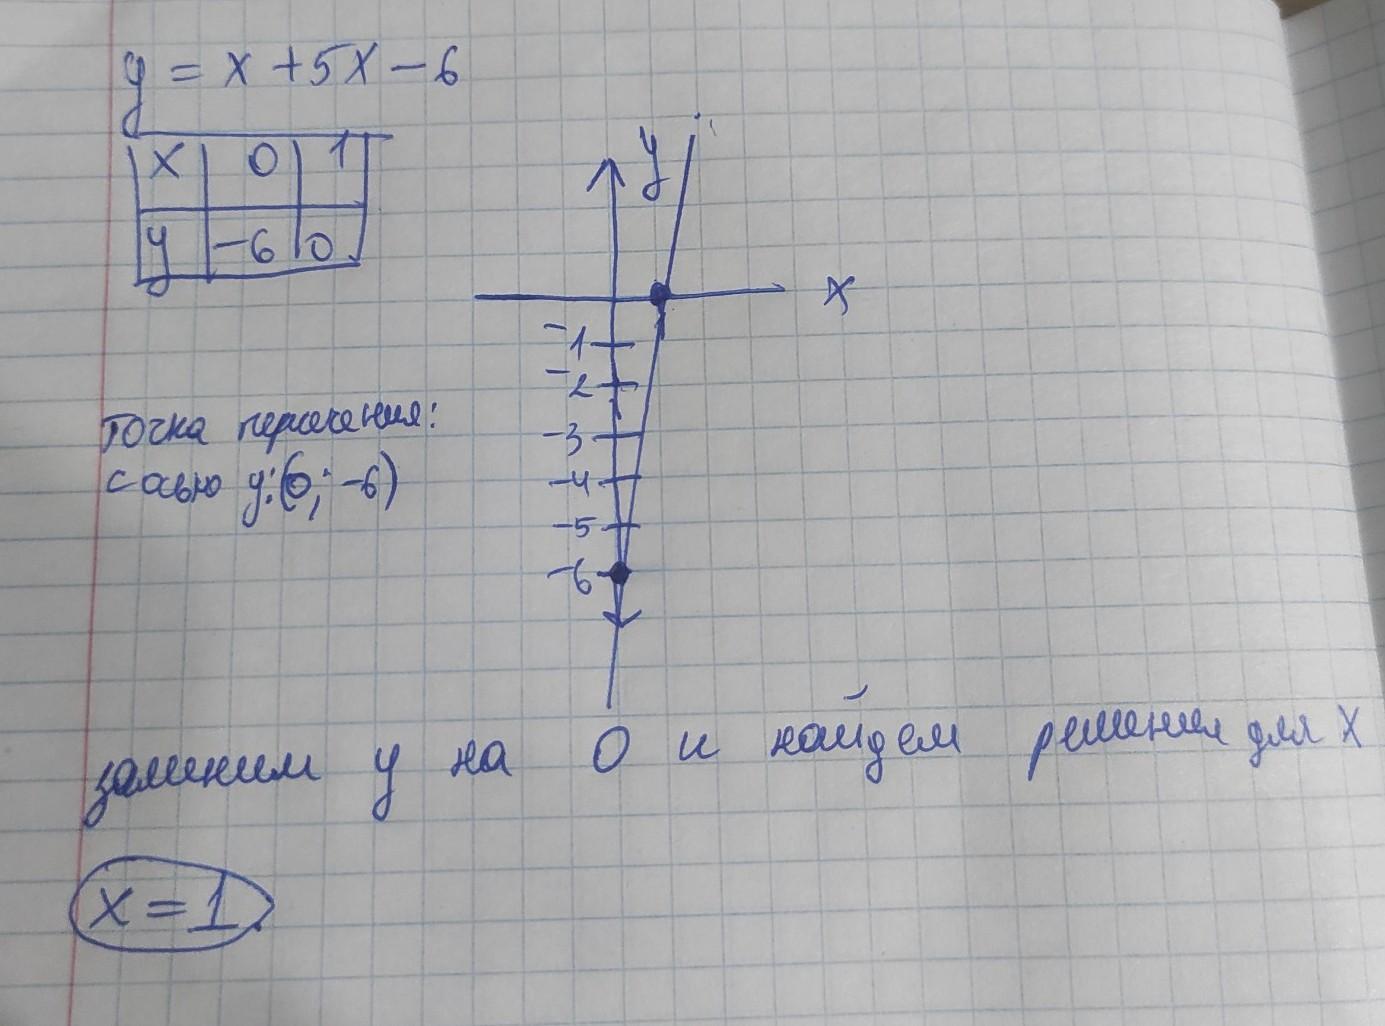 y = x + 5x - 6
x 0 1
y -6 0
y
x
-1
-2
-3
-4
-5
-6
Точка перасения:
с осью y:(0; -6)
заменим y на 0 и найдем решения для x
x = 1